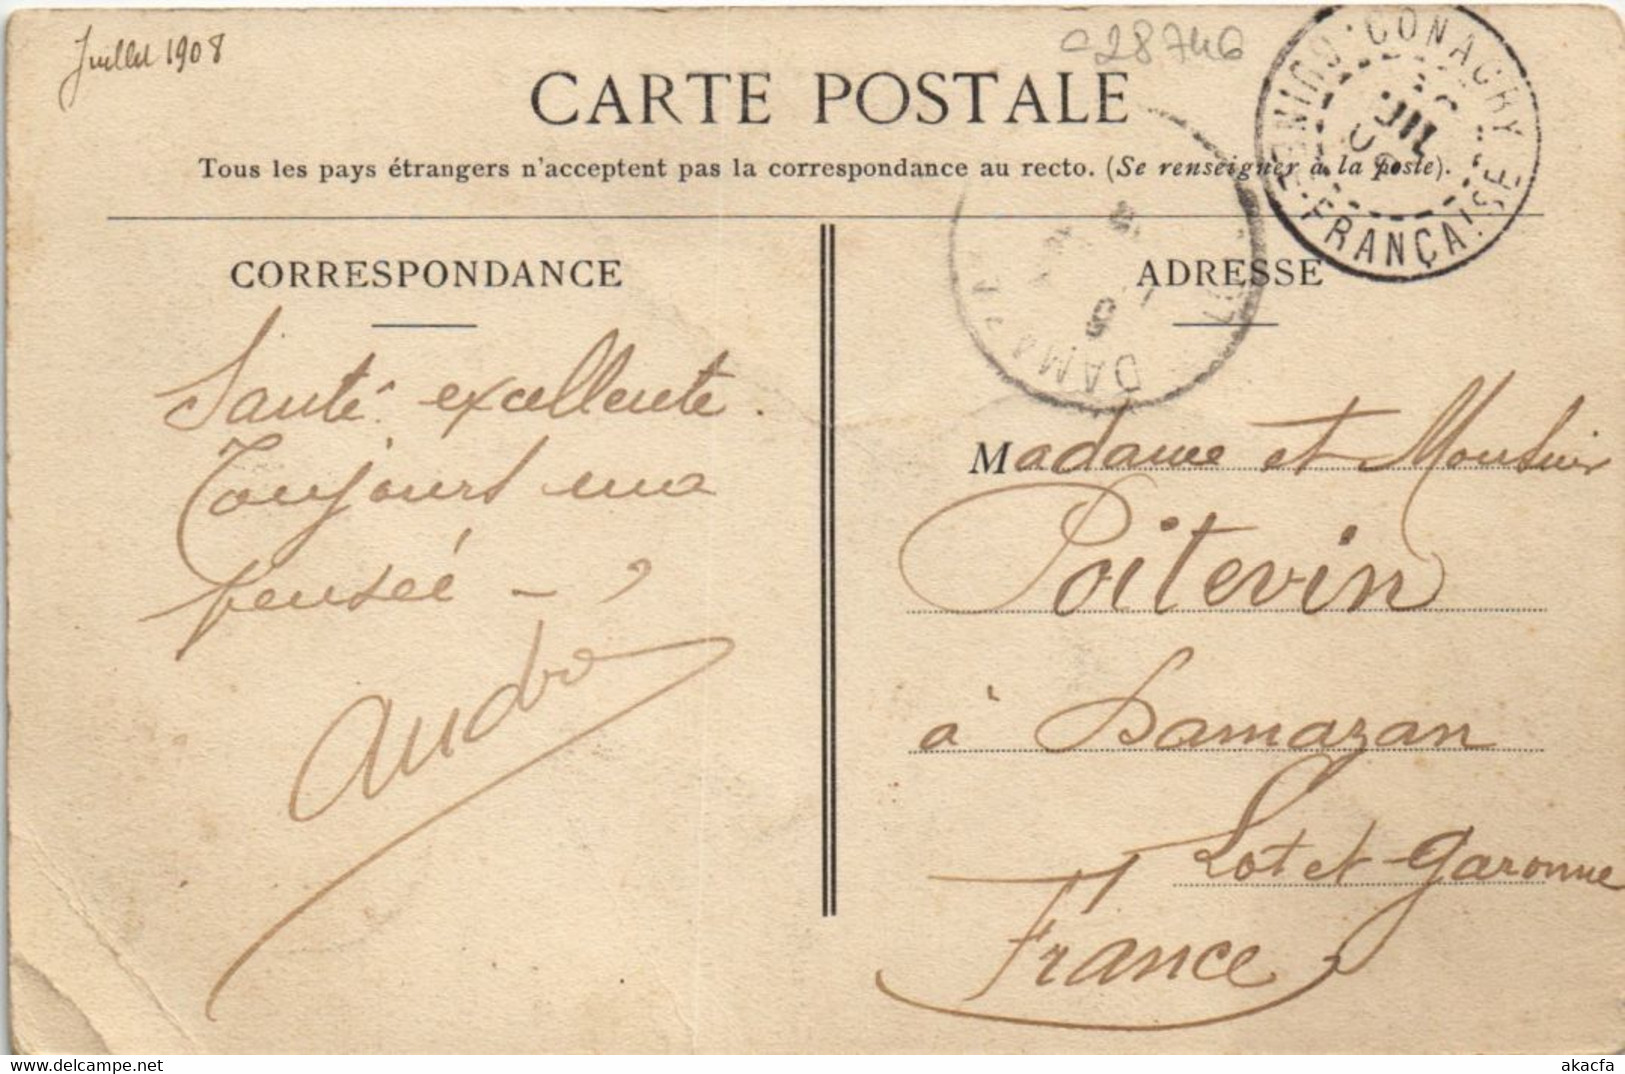 Juillet 1908
C28746
CARTE POSTALE
Tous les pays étrangers n'acceptent pas la correspondance au recto. (Se renseigner à la poste).
CONAKRY
GUINÉE FRANÇAISE
JUIL
DAMAZAN
CORRESPONDANCE
Santé excellente.
Toujours une
pensée -
ADRESSE
Madame et Monsieur
Poitevin
à Damazan
Lot et Garonne
France
akacfa